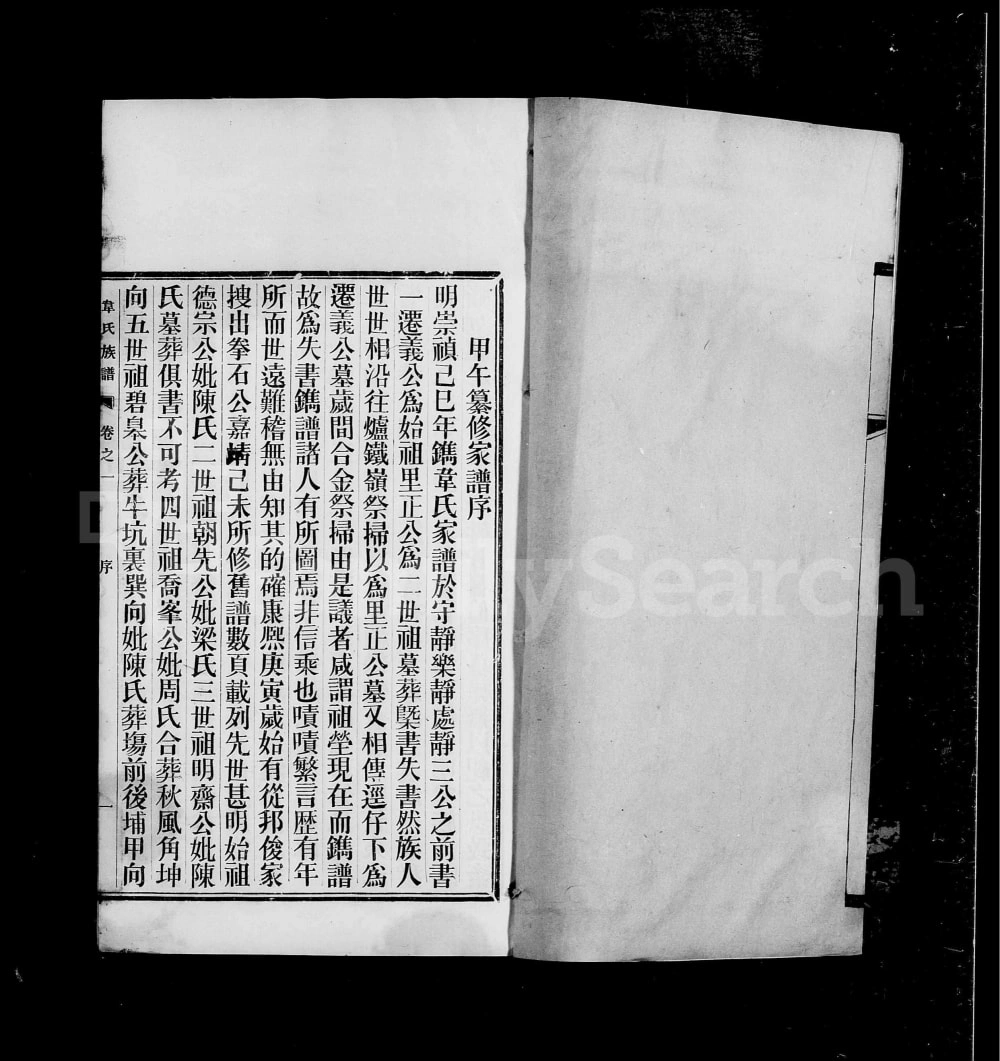 甲午纂修家譜序
明崇禎己巳年鐫韋氏家譜於守靜樂靜處靜三公之前書
一遷義公爲始祖里正公爲二世祖墓葬槩書失書然族人
世世相沿往爐鐵嶺祭掃以爲里正公墓又相傳逕仔下爲
遷義公墓歲間合金祭掃由是議者咸謂祖塋現在而鐫譜
故爲失書鐫譜諸人有所圖焉非信乘也嘖嘖繁言歷有年
所而世遠難稽無由知其的確康熈庚寅歲始有從邦俊家
搜出拳石公嘉靖己未所修舊譜數頁載列先世甚明始祖
德宗公妣陳氏二世祖朝先公妣梁氏三世祖明齋公妣陳
氏墓葬俱書不可考四世祖喬峯公妣周氏合葬秋風角坤
向五世祖碧臯公葬牛坑裏巽向妣陳氏葬塲前後埔甲向
韋氏族譜 卷之一 序 一